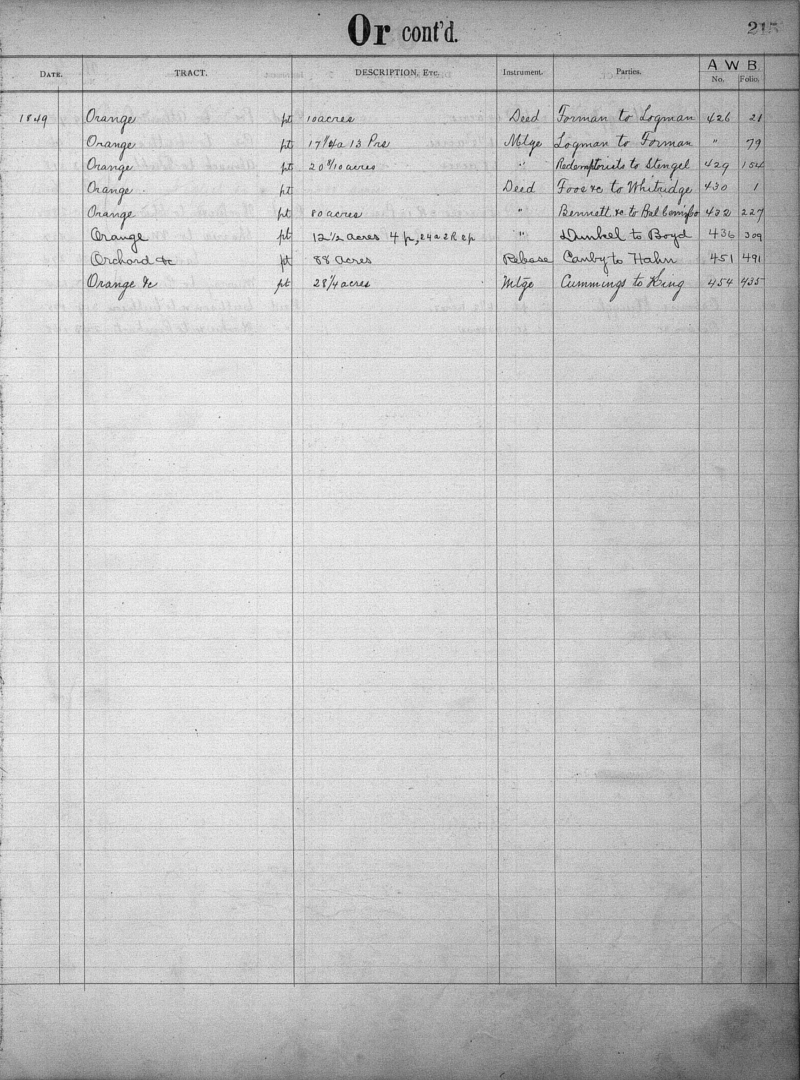 Or cont'd. 215
DATE. TRACT. DESCRIPTION, ETC. Instrument. Parties. A W B
No. Folio.
1849 Orange pt 10 acres Deed Forman to Logman 426 21
Orange pt 17 1/4 a 13 Prs Mtge Logman to Forman " 79
Orange pt 20 acres " Redemptorists to Stengel 429 154
Orange pt Deed Foos &c to Whitridge 430 1
Orange pt 80 acres " Bennett &c to 432 227
Orange pt 12 1/2 acres 4 p, 24 a 2 R 2 p " Dunkel to Boyd 436 309
Orchard &c pt 88 acres Release Canby to Hahn 451 491
Orange &c pt 28 1/4 acres Mtge Cummings to King 454 435